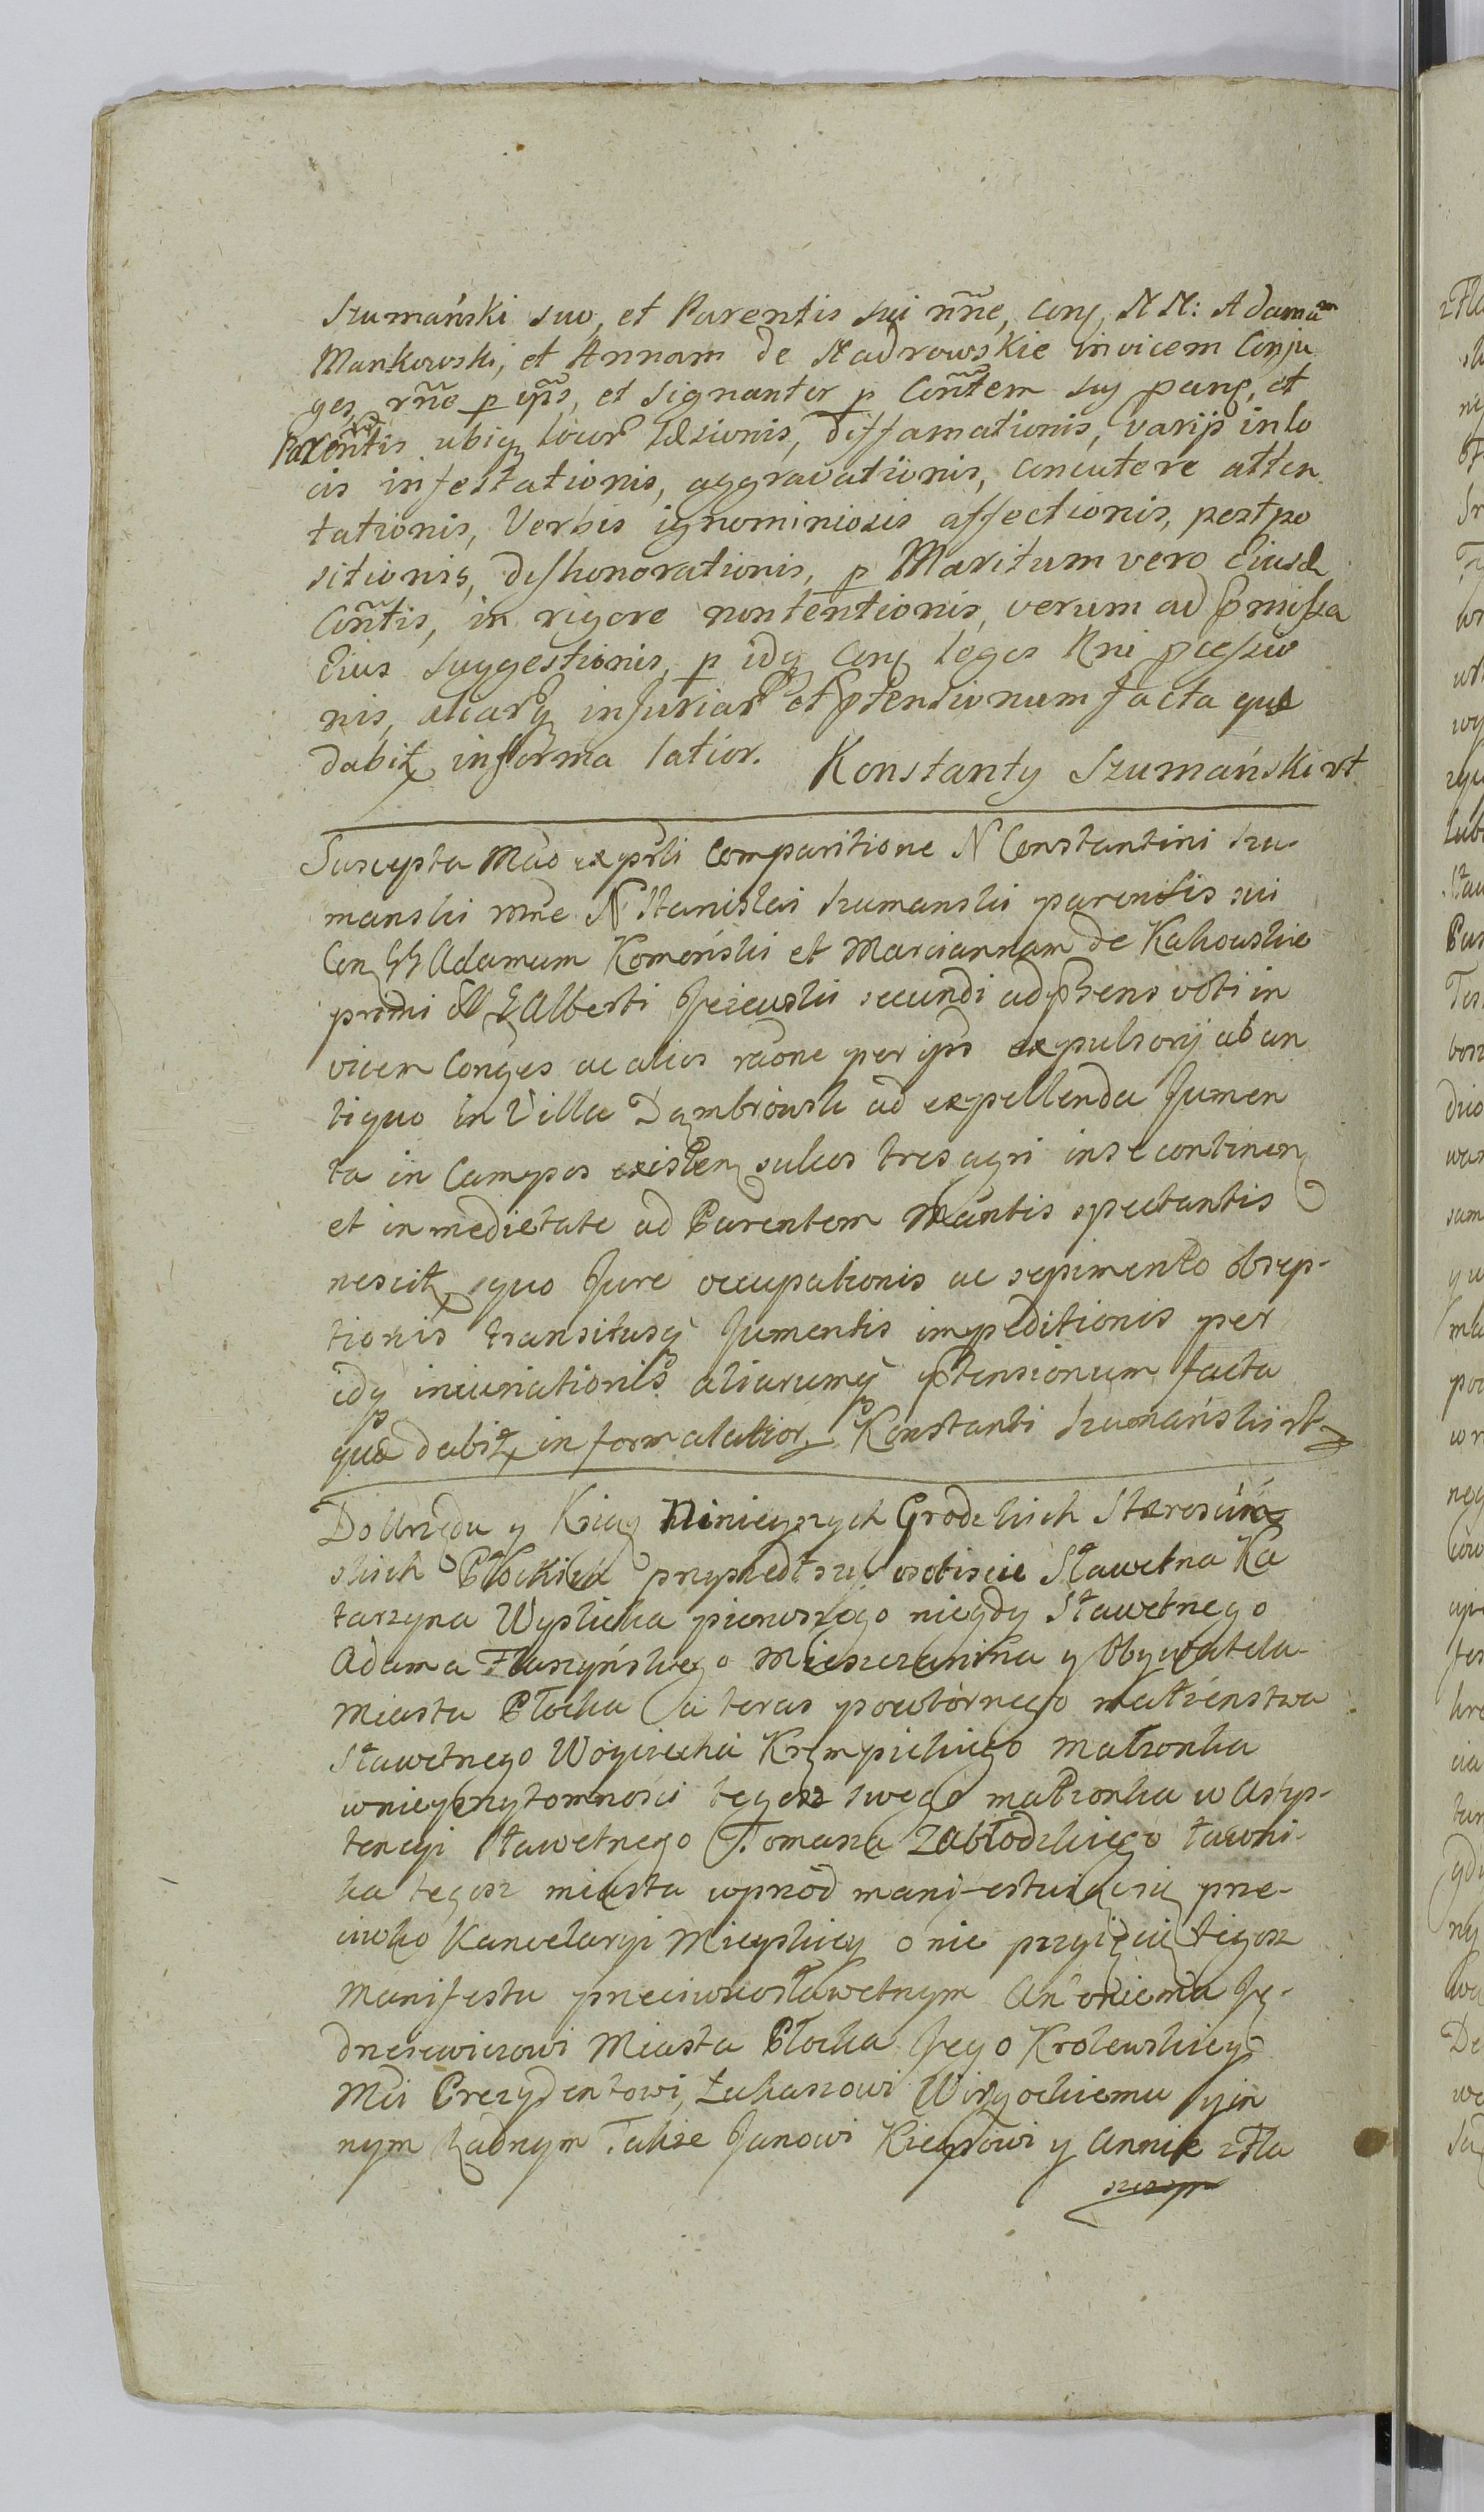 Szumański suo, et Parentis sui nñe, Conț NN: Adamũ
Mankowski, et Annam de Nadrowskie invicem Conju
ges, rñe p ipős, et signanter p Cõntem suș pang, et
Parentis ubiq locor læsionis, diffamationis, varijs in lo
cis infestationis, aggravationis, concutere atten
tationis, Verbis ignominiosis affectionis, postpo
sitionis, dishonorationis, p Maritum vero Eiusd
Cõntis, in rigore nontentionis, verum ad pmissa
Eius suggestionis, p idq Conț leges Rni pcessio
nis, aliarq injuriar et ptensionum facta quæ
dabit informa latior. Konstanty Szumański rt
Suscepta Mão exprsti Comparitione N Constantini Szu-
manski nñe N Stanislai Szumanski parentis sui
Con GG Adamum Komoński et Mariannam de Kakowskie
primi & Alberti Jeżewski secundi ad prsens voti in
vicem Conges ac alios rãone per ipős expulsorij ab an
tiquo in Villa Dąmbrowsk ad expellenda Jumen
ta in Campos existen sulcos tres agri in se continen
et in medietate ad Parentem Mãntis spectantis
nescit, quo Jure occupationis ac sepimento obsep-
tionis transitusq Jumentis impeditionis per
idq iniuriationis aliarumq ptensionum facta
quæ dabit in forma latior Konstanti Szumański rt
Do Urzędu y Kiąg Ninieyszych Grodzkich Starościn
skich Płockich przyszedłszy osobiscie Sławetna Ka
tarzyna Wyslicka pierwszego niegdy Sławetnego
Adama Flaszyńskiego Mieszczanina y Obywatela
Miasta Płocka a teras powtórnego małżeństwa
Sławetnego Woyciecha Krępickiego małzonka
w nieyprzytomnosci tegosz swego małzonka w Assys-
tencyi Sławetnego Tomasza Zabłodzkiego Ławni-
ka tegosz miasta wprzód manifestuiącsię prze-
ciwko Kancelaryi Mieyskiey o nie przyięcie tegosz
Manifestu przeciwko sławetnym Antoniemu Ję-
drzeiewiczowi Miasta Płocka Jego Krolewskiey
Mci Prezydentowi, Łukaszowi Wissockiemu y in
nym Radnym Także Janowi Kieysowi y Annie z Fla